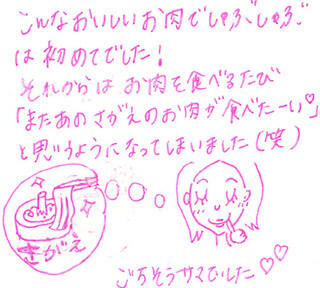 こんなおいしいお肉でしゃぶしゃぶ
は初めてでした！
それからは お肉を食べるたび
「またあの さがえのお肉が食べたーい♡」
と思うようになってしまいました（笑）
さがえ
ごちそうサマでした♡♡